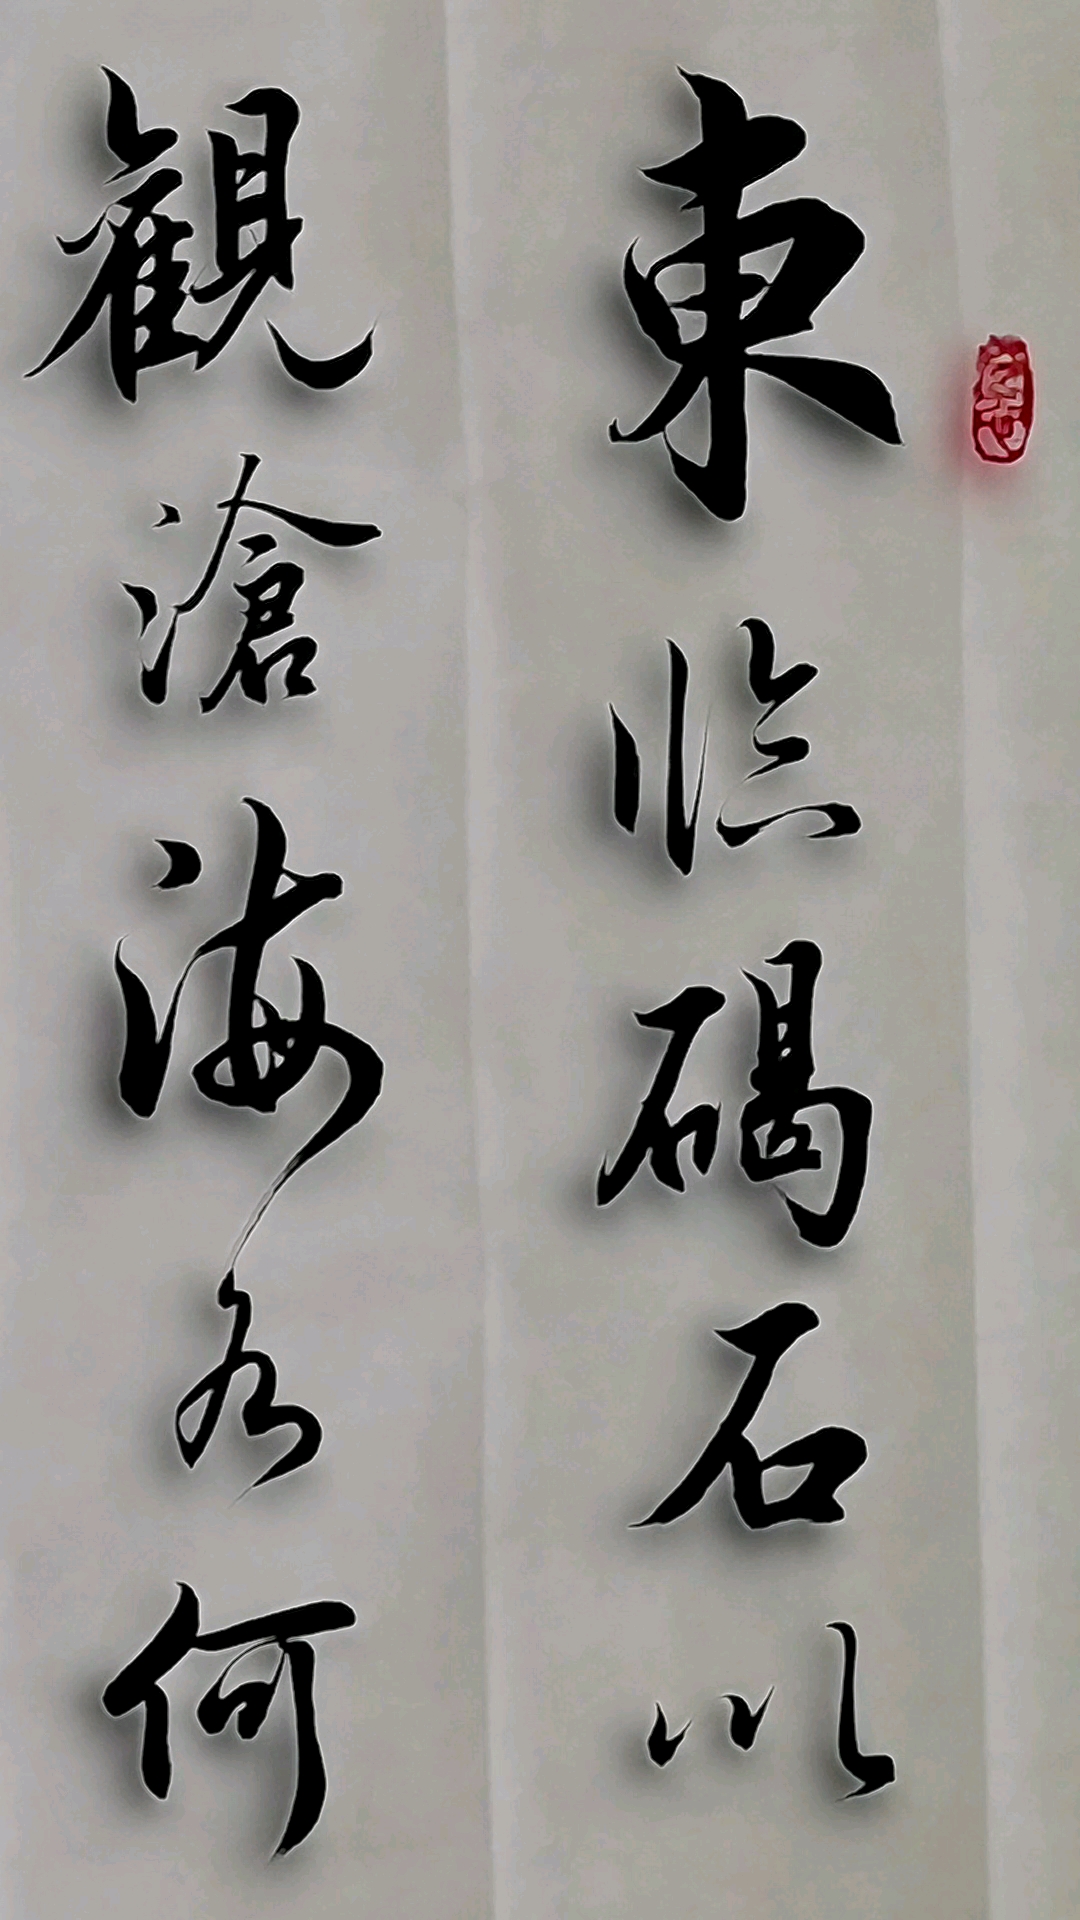 東临碣石以
觀滄海水何